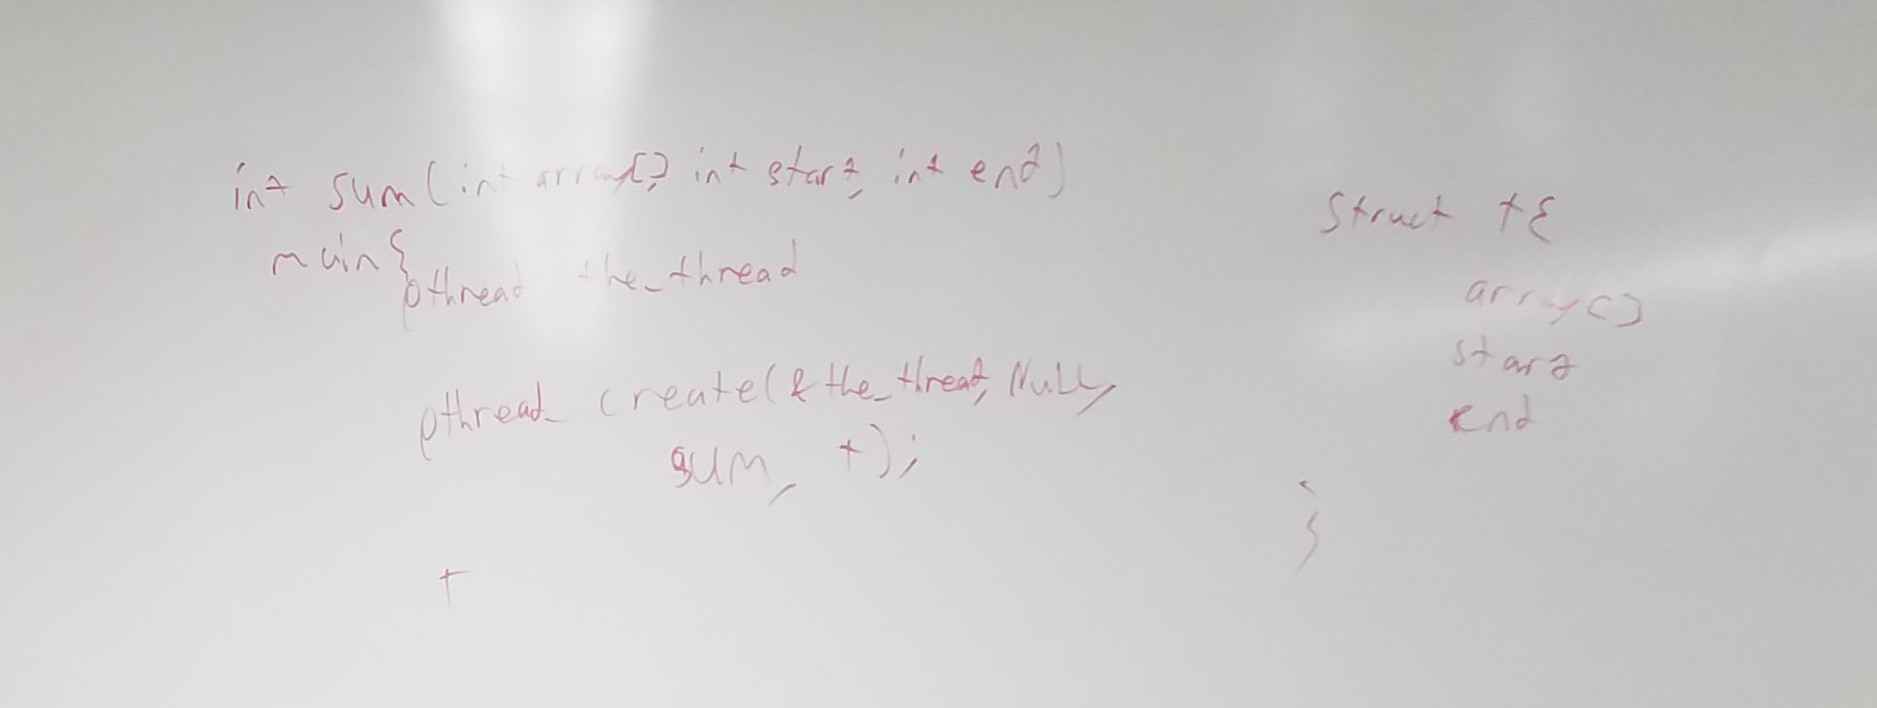 int sum(int array[], int start, int end)
main{
pthread the_thread
pthread_create(&the_thread, Null,
sum, t);
t
Struct t{
array[]
start
end
}